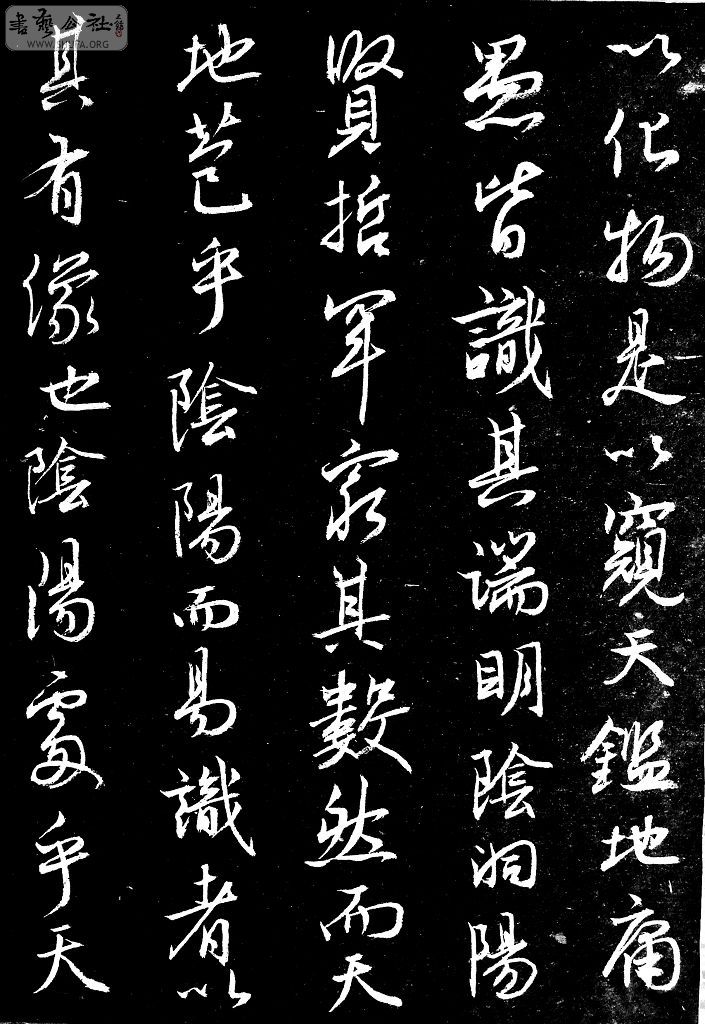 以化物是以窺天鑑地庸
愚皆識其端明陰洞陽
賢哲罕窮其數然而天
地苞乎陰陽而易識者以
其有像也陰陽處乎天
書藝公社
WWW.SHUFA.ORG